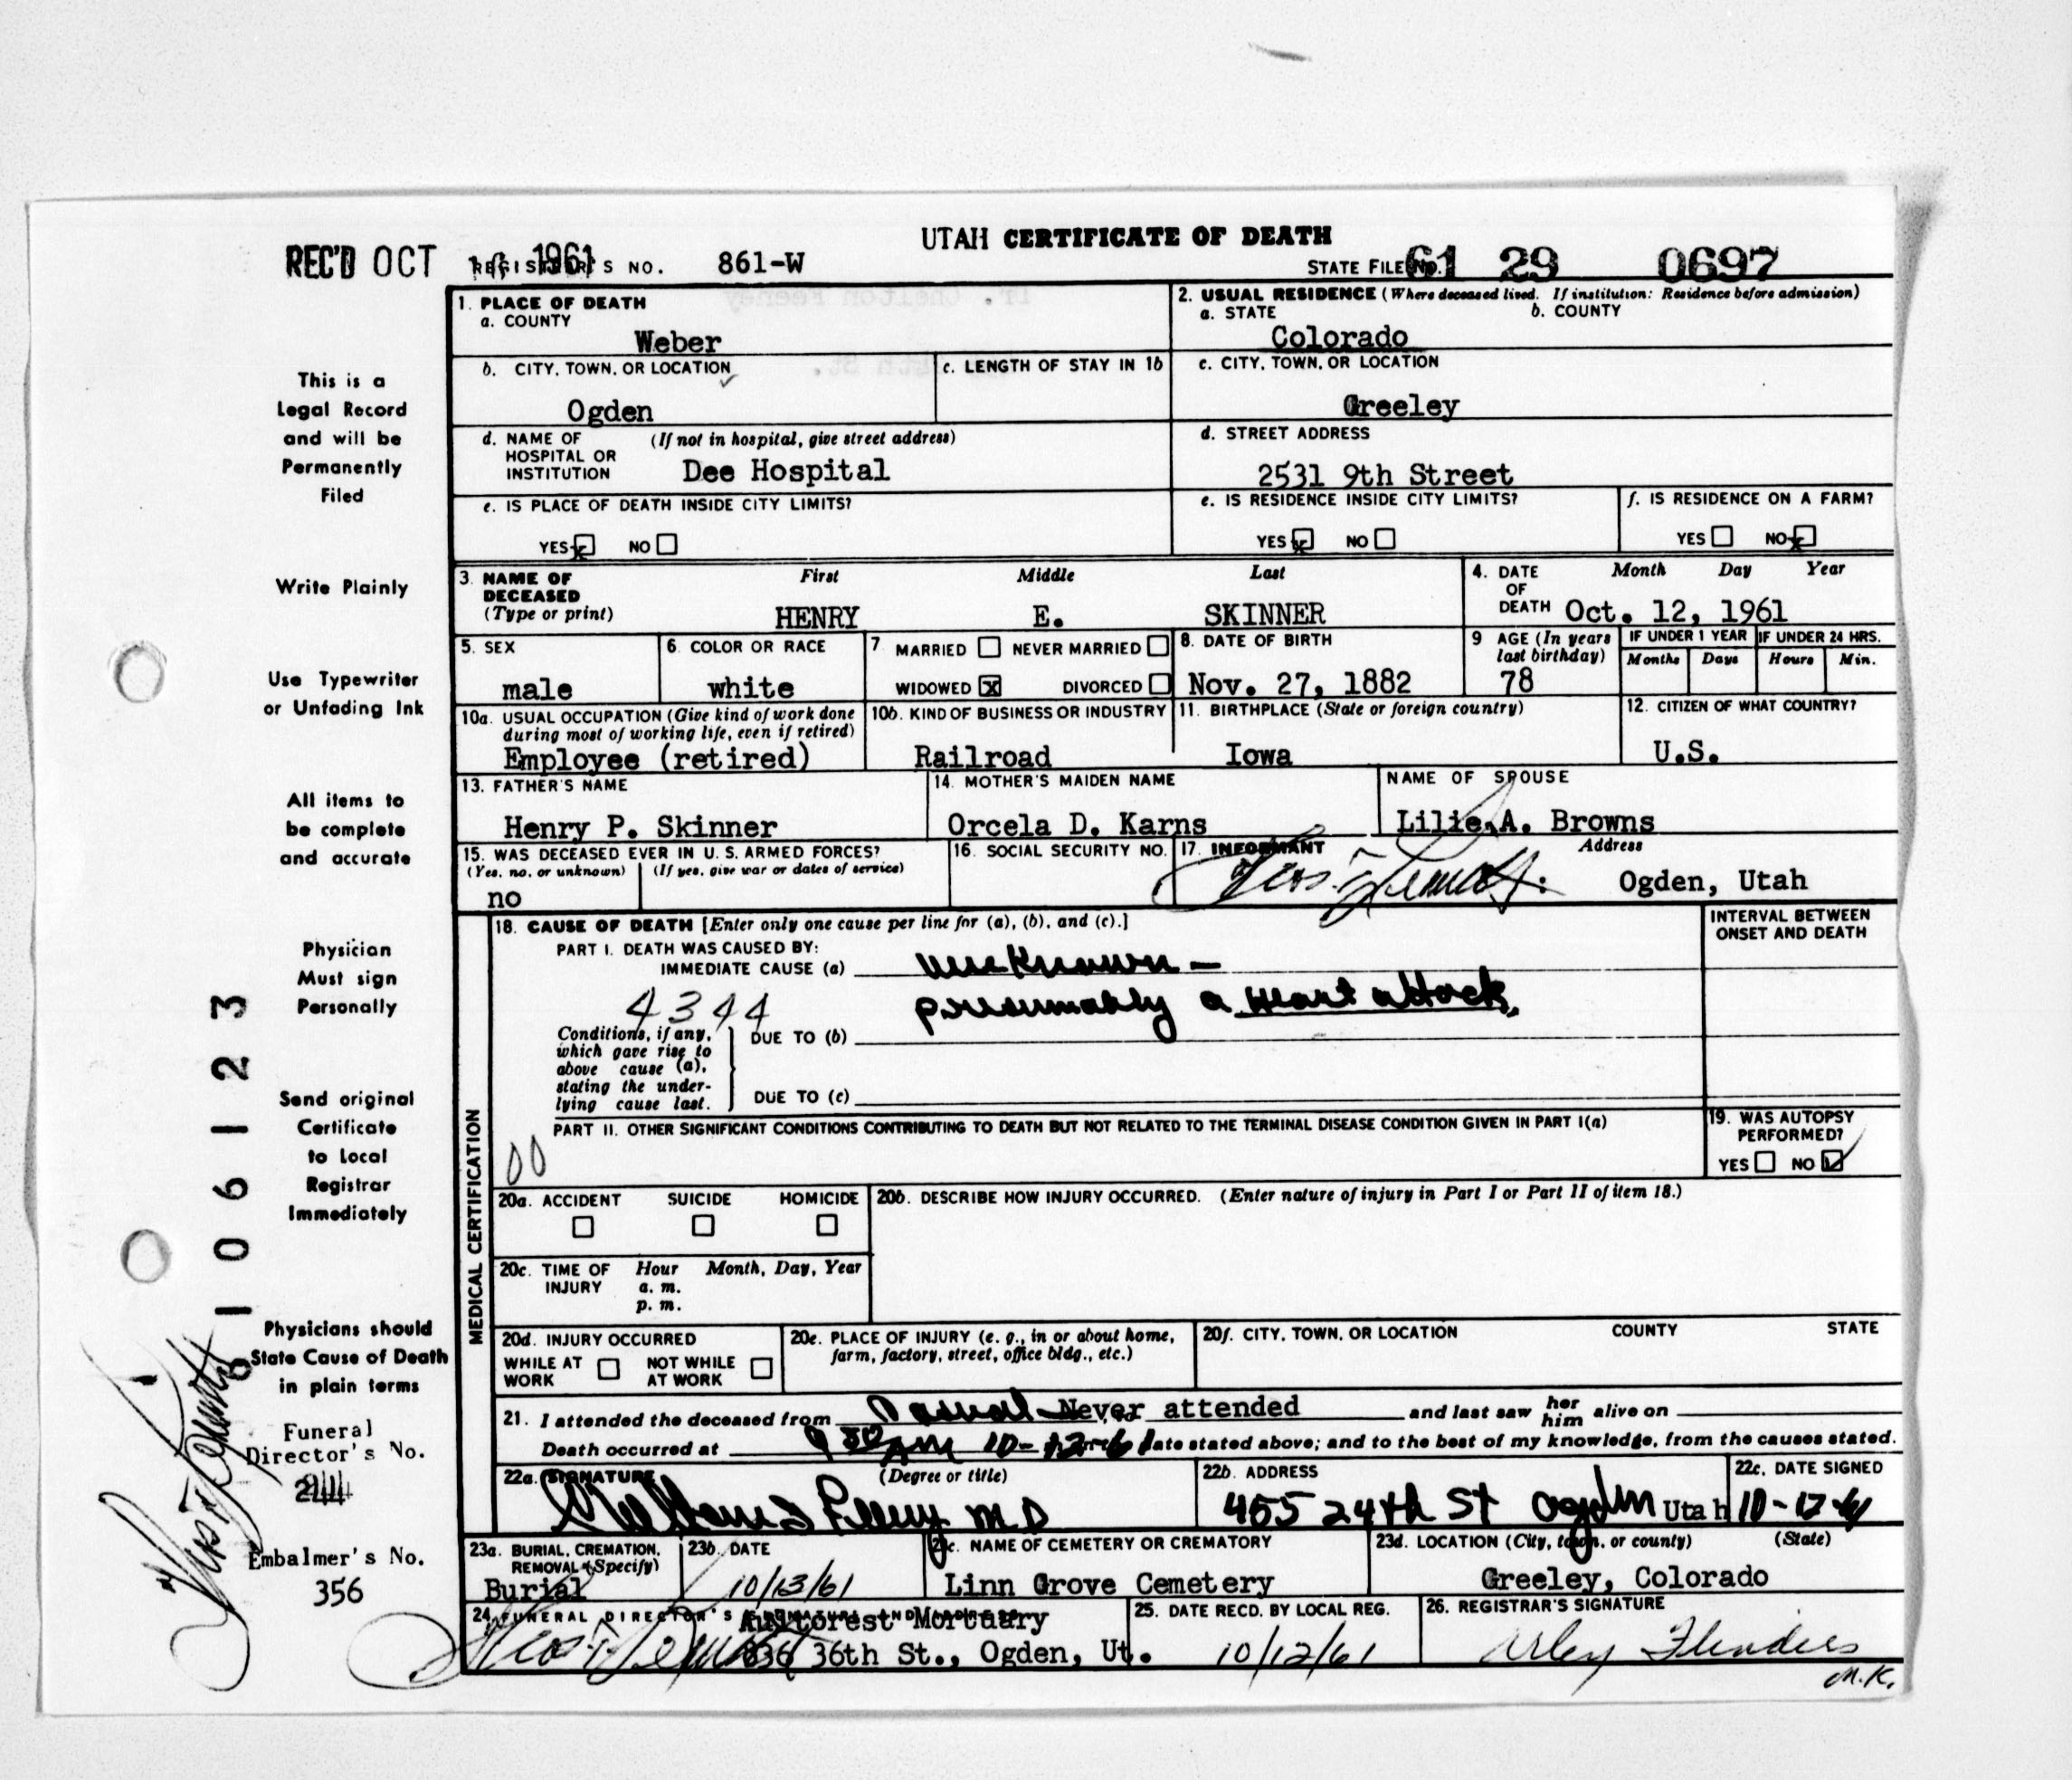 UTAH CERTIFICATE OF DEATH
REC'D OCT 1961
REGISTRAR'S NO. 861-W
STATE FILE NO. 61 29 0697
1. PLACE OF DEATH
a. COUNTY
Weber
2. USUAL RESIDENCE (Where deceased lived. If institution: Residence before admission)
a. STATE b. COUNTY
Colorado
b. CITY, TOWN, OR LOCATION
Ogden
c. LENGTH OF STAY IN 1b
c. CITY, TOWN, OR LOCATION
Greeley
d. NAME OF HOSPITAL OR INSTITUTION (If not in hospital, give street address)
Dee Hospital
d. STREET ADDRESS
2531 9th Street
e. IS PLACE OF DEATH INSIDE CITY LIMITS?
YES x NO
e. IS RESIDENCE INSIDE CITY LIMITS?
YES x NO
f. IS RESIDENCE ON A FARM?
YES NO x
3. NAME OF DECEASED (Type or print)
First Middle Last
HENRY E. SKINNER
4. DATE OF DEATH
Month Day Year
Oct. 12, 1961
5. SEX
male
6. COLOR OR RACE
white
7 MARRIED NEVER MARRIED
WIDOWED x DIVORCED
8. DATE OF BIRTH
Nov. 27, 1882
9 AGE (In years last birthday)
78
IF UNDER 1 YEAR
Months Days
IF UNDER 24 HRS.
Hours Min.
10a. USUAL OCCUPATION (Give kind of work done during most of working life, even if retired)
Employee (retired)
10b. KIND OF BUSINESS OR INDUSTRY
Railroad
11. BIRTHPLACE (State or foreign country)
Iowa
12. CITIZEN OF WHAT COUNTRY?
U.S.
13. FATHER'S NAME
Henry P. Skinner
14. MOTHER'S MAIDEN NAME
Orcela D. Karns
NAME OF SPOUSE
Lilie A. Browns
15. WAS DECEASED EVER IN U.S. ARMED FORCES?
(Yes, no, or unknown) (If yes, give war or dates of service)
no
16. SOCIAL SECURITY NO.
17. INFORMANT
Address
Ogden, Utah
MEDICAL CERTIFICATION
18. CAUSE OF DEATH [Enter only one cause per line for (a), (b), and (c).]
PART I. DEATH WAS CAUSED BY:
IMMEDIATE CAUSE (a) unknown -
presumably a heart attack.
4344
Conditions, if any, which gave rise to above cause (a), stating the underlying cause last.
DUE TO (b)
DUE TO (c)
INTERVAL BETWEEN ONSET AND DEATH
PART II. OTHER SIGNIFICANT CONDITIONS CONTRIBUTING TO DEATH BUT NOT RELATED TO THE TERMINAL DISEASE CONDITION GIVEN IN PART I(a)
00
19. WAS AUTOPSY PERFORMED?
YES NO ✓
20a. ACCIDENT SUICIDE HOMICIDE
20b. DESCRIBE HOW INJURY OCCURRED. (Enter nature of injury in Part I or Part II of item 18.)
20c. TIME OF INJURY Hour Month, Day, Year
a. m.
p. m.
20d. INJURY OCCURRED
WHILE AT WORK NOT WHILE AT WORK
20e. PLACE OF INJURY (e. g., in or about home, farm, factory, street, office bldg., etc.)
20f. CITY, TOWN, OR LOCATION COUNTY STATE
21. I attended the deceased from Never attended and last saw her him alive on
Death occurred at 10-12-61 date stated above; and to the best of my knowledge, from the causes stated.
22a. SIGNATURE (Degree or title)
M D
22b. ADDRESS
455 24th St Ogden Utah
22c. DATE SIGNED
10-12-61
23a. BURIAL, CREMATION, REMOVAL (Specify)
Burial
23b. DATE
10/13/61
23c. NAME OF CEMETERY OR CREMATORY
Linn Grove Cemetery
23d. LOCATION (City, town, or county) (State)
Greeley, Colorado
24. FUNERAL DIRECTOR'S SIGNATURE AND ADDRESS
Mortuary
836 36th St., Ogden, Ut.
25. DATE RECD. BY LOCAL REG.
10/12/61
26. REGISTRAR'S SIGNATURE
Arley Flinders
M.K.
This is a
Legal Record
and will be
Permanently
Filed
Write Plainly
Use Typewriter
or Unfading Ink
All items to
be complete
and accurate
Physician
Must sign
Personally
Send original
Certificate
to Local
Registrar
Immediately
Physicians should
State Cause of Death
in plain terms
Funeral
Director's No.
244
Embalmer's No.
356